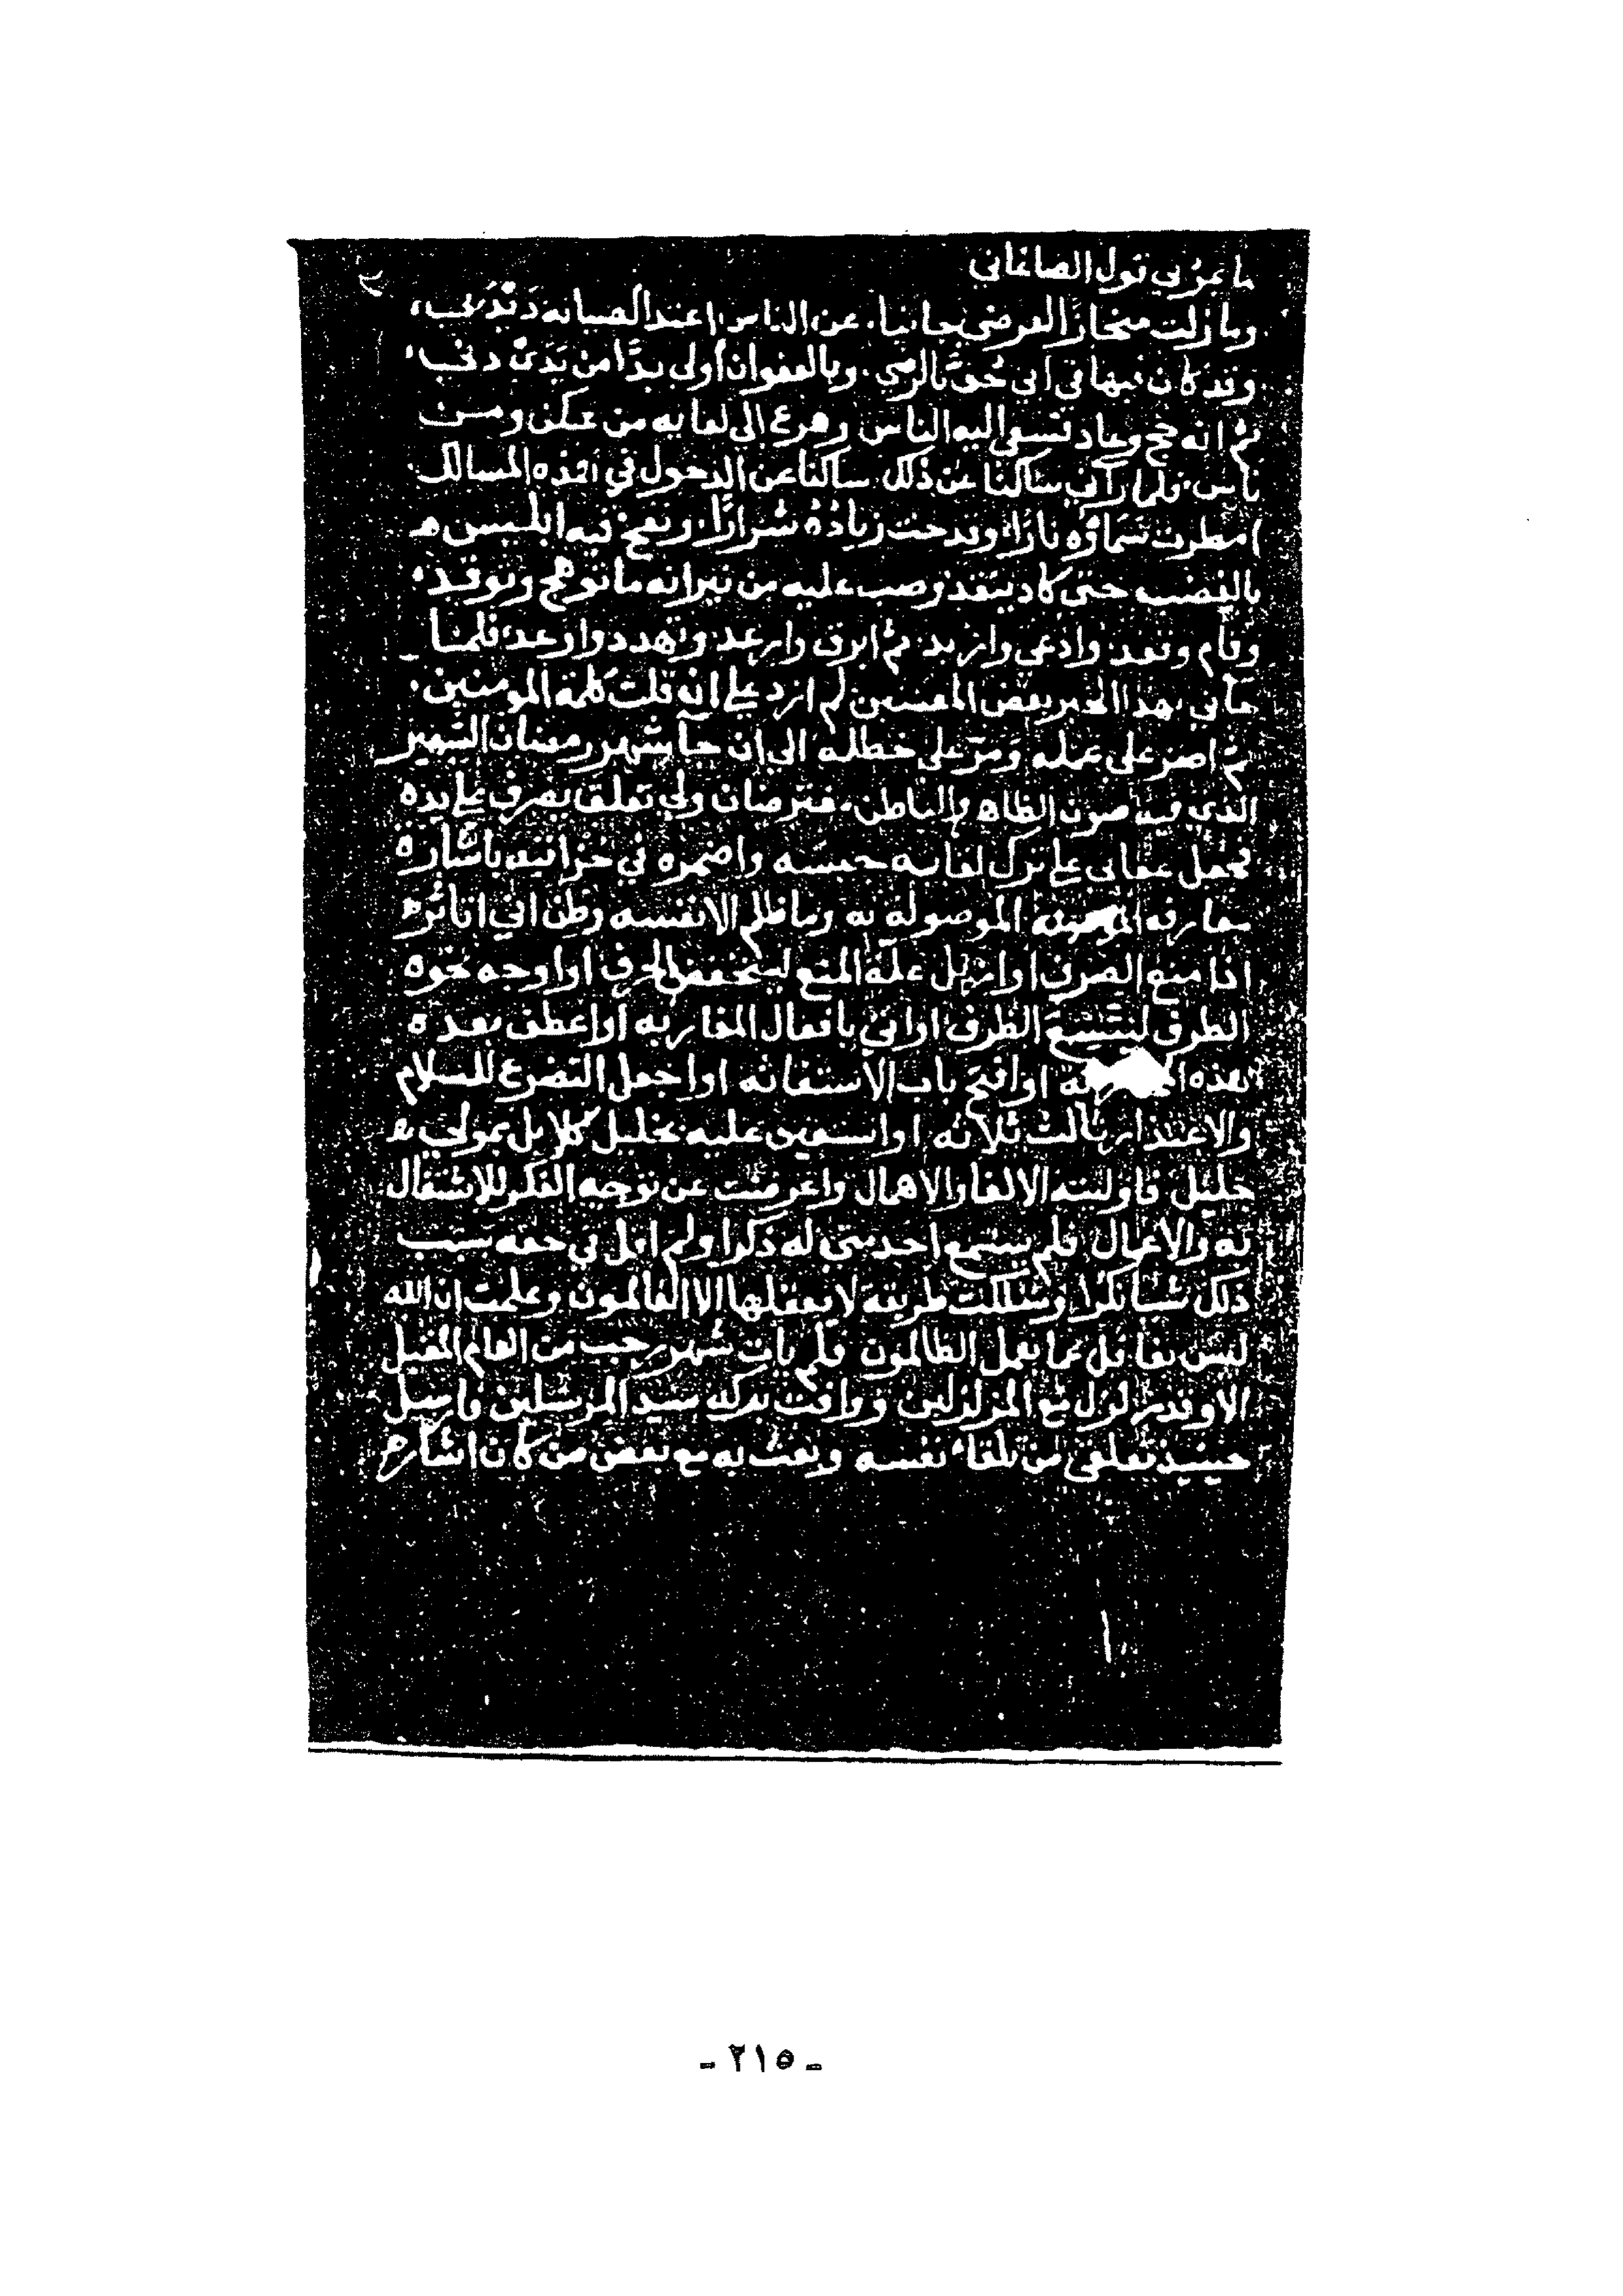 ما عمر بي قول الصاغاني
وما زلت منحاز العرضي جانبا. عن الناس اعتد الصيانة
وقد كان فيها في اني حق بالرمي. وبالعفوان اولي بدا من
ثم انه حج وعاد نسعى اليه الناس وهرع الى لقايه من عكن ومن
ناس. فلما رآني ساكنا عن ذلك ساكتا عن الدخول في هذه المسالك
امطرت سماؤه نارا. وقدحت زياده شرارا. ونفخ فيه ابليس
بالغضب حتى كاد ينقد وصب عليه من نيرانه ما توهج وتوقد
وقام وقعد وادعى وازبد ثم ابرق وارعد وتهدد واوعد فلما
جآني بهذا الخبر بعض المفسدين لم ازد على انه قلت كلمة المومنين.
ثم اصر على عمله ومر على خطله الى ان جآ شهر رمضان الشهير
الذي فيه صون الظاهر والباطن. فتر رمضان ولي تعلق بصرف على يده
فجعل عقابى على ترك لقايه حبسه واضمره في خزانته باشارة
خارفه الموصوله به وما ظلم الا نفسه وظن اني اتاثر
اذا منع الصرف او ازيل علة المنع لينخفض الحرف او اوجه نحوه
الطرف ليتسع الظرف او اتي بافعال المقاربه او اعطف بعده
بهذه او افتح باب الاستغاثه او اجعل التضرع للسلام
والاعتذار ثالث ثلاثه او استعين عليه بخليل كلا بل بمولى
خليل فاوليته الالغا والاهمال واعرضت عن توجيه الفكر للاشتغال
به والاعمال فلم يسمع احد منى له ذكرا ولم اقل في حقه بسبب
ذلك شيا نكرا وسلكت طريقة لا يعقلها الا العالمون وعلمت ان الله
ليس بغافل عما يعمل الظالمون فلم يات شهر رجب من العام المقبل
الا وقد زلزل مع المزلزلين ووافت بركة سيد المرسلين فارسل
حينيذ تعلقى من تلقاء نفسه وبعث به مع بعض من كان اشار
- ٢١٥ -